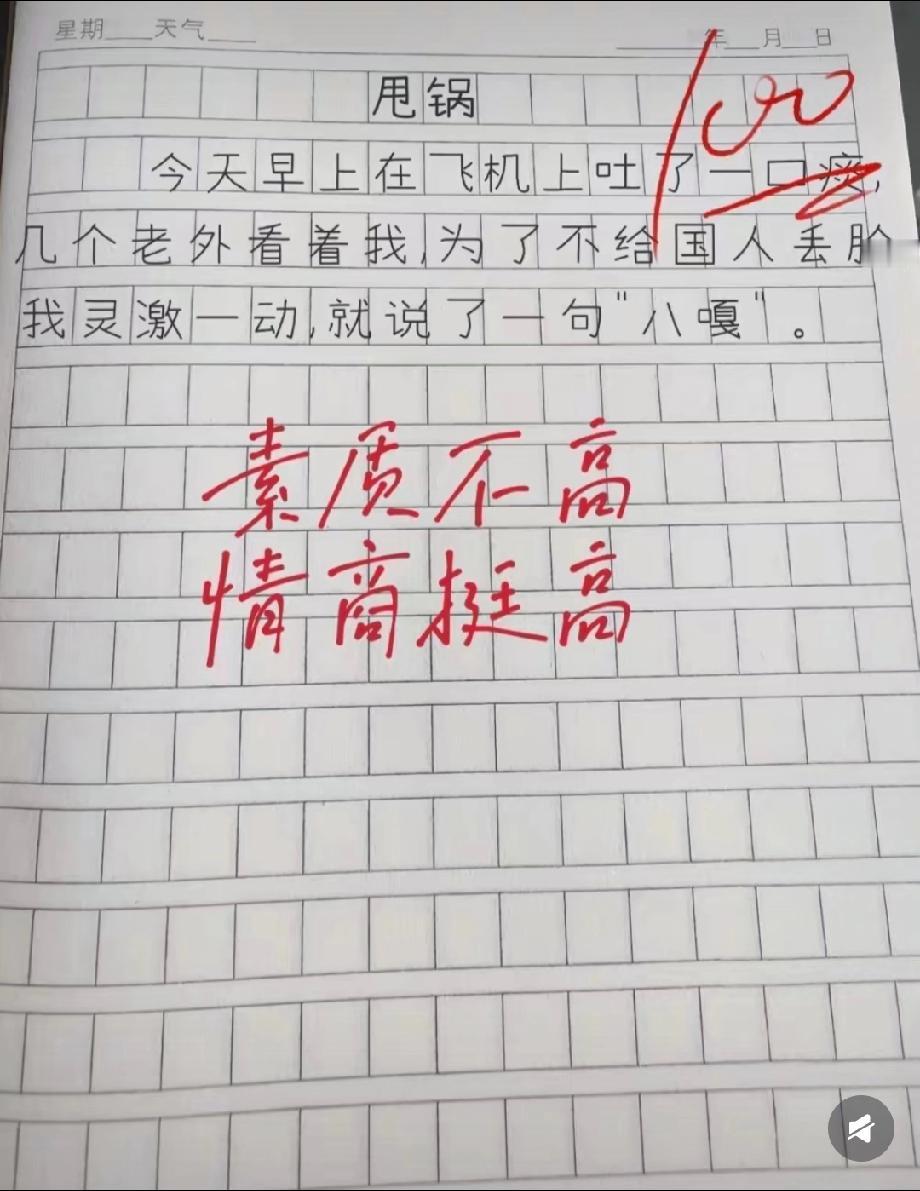 星期 天气 年 月 日
100
甩锅
今天早上在飞机上吐了一口痰,
几个老外看着我,为了不给国人丢脸
我灵激一动,就说了一句"八嘎"。
素质不高
情商挺高